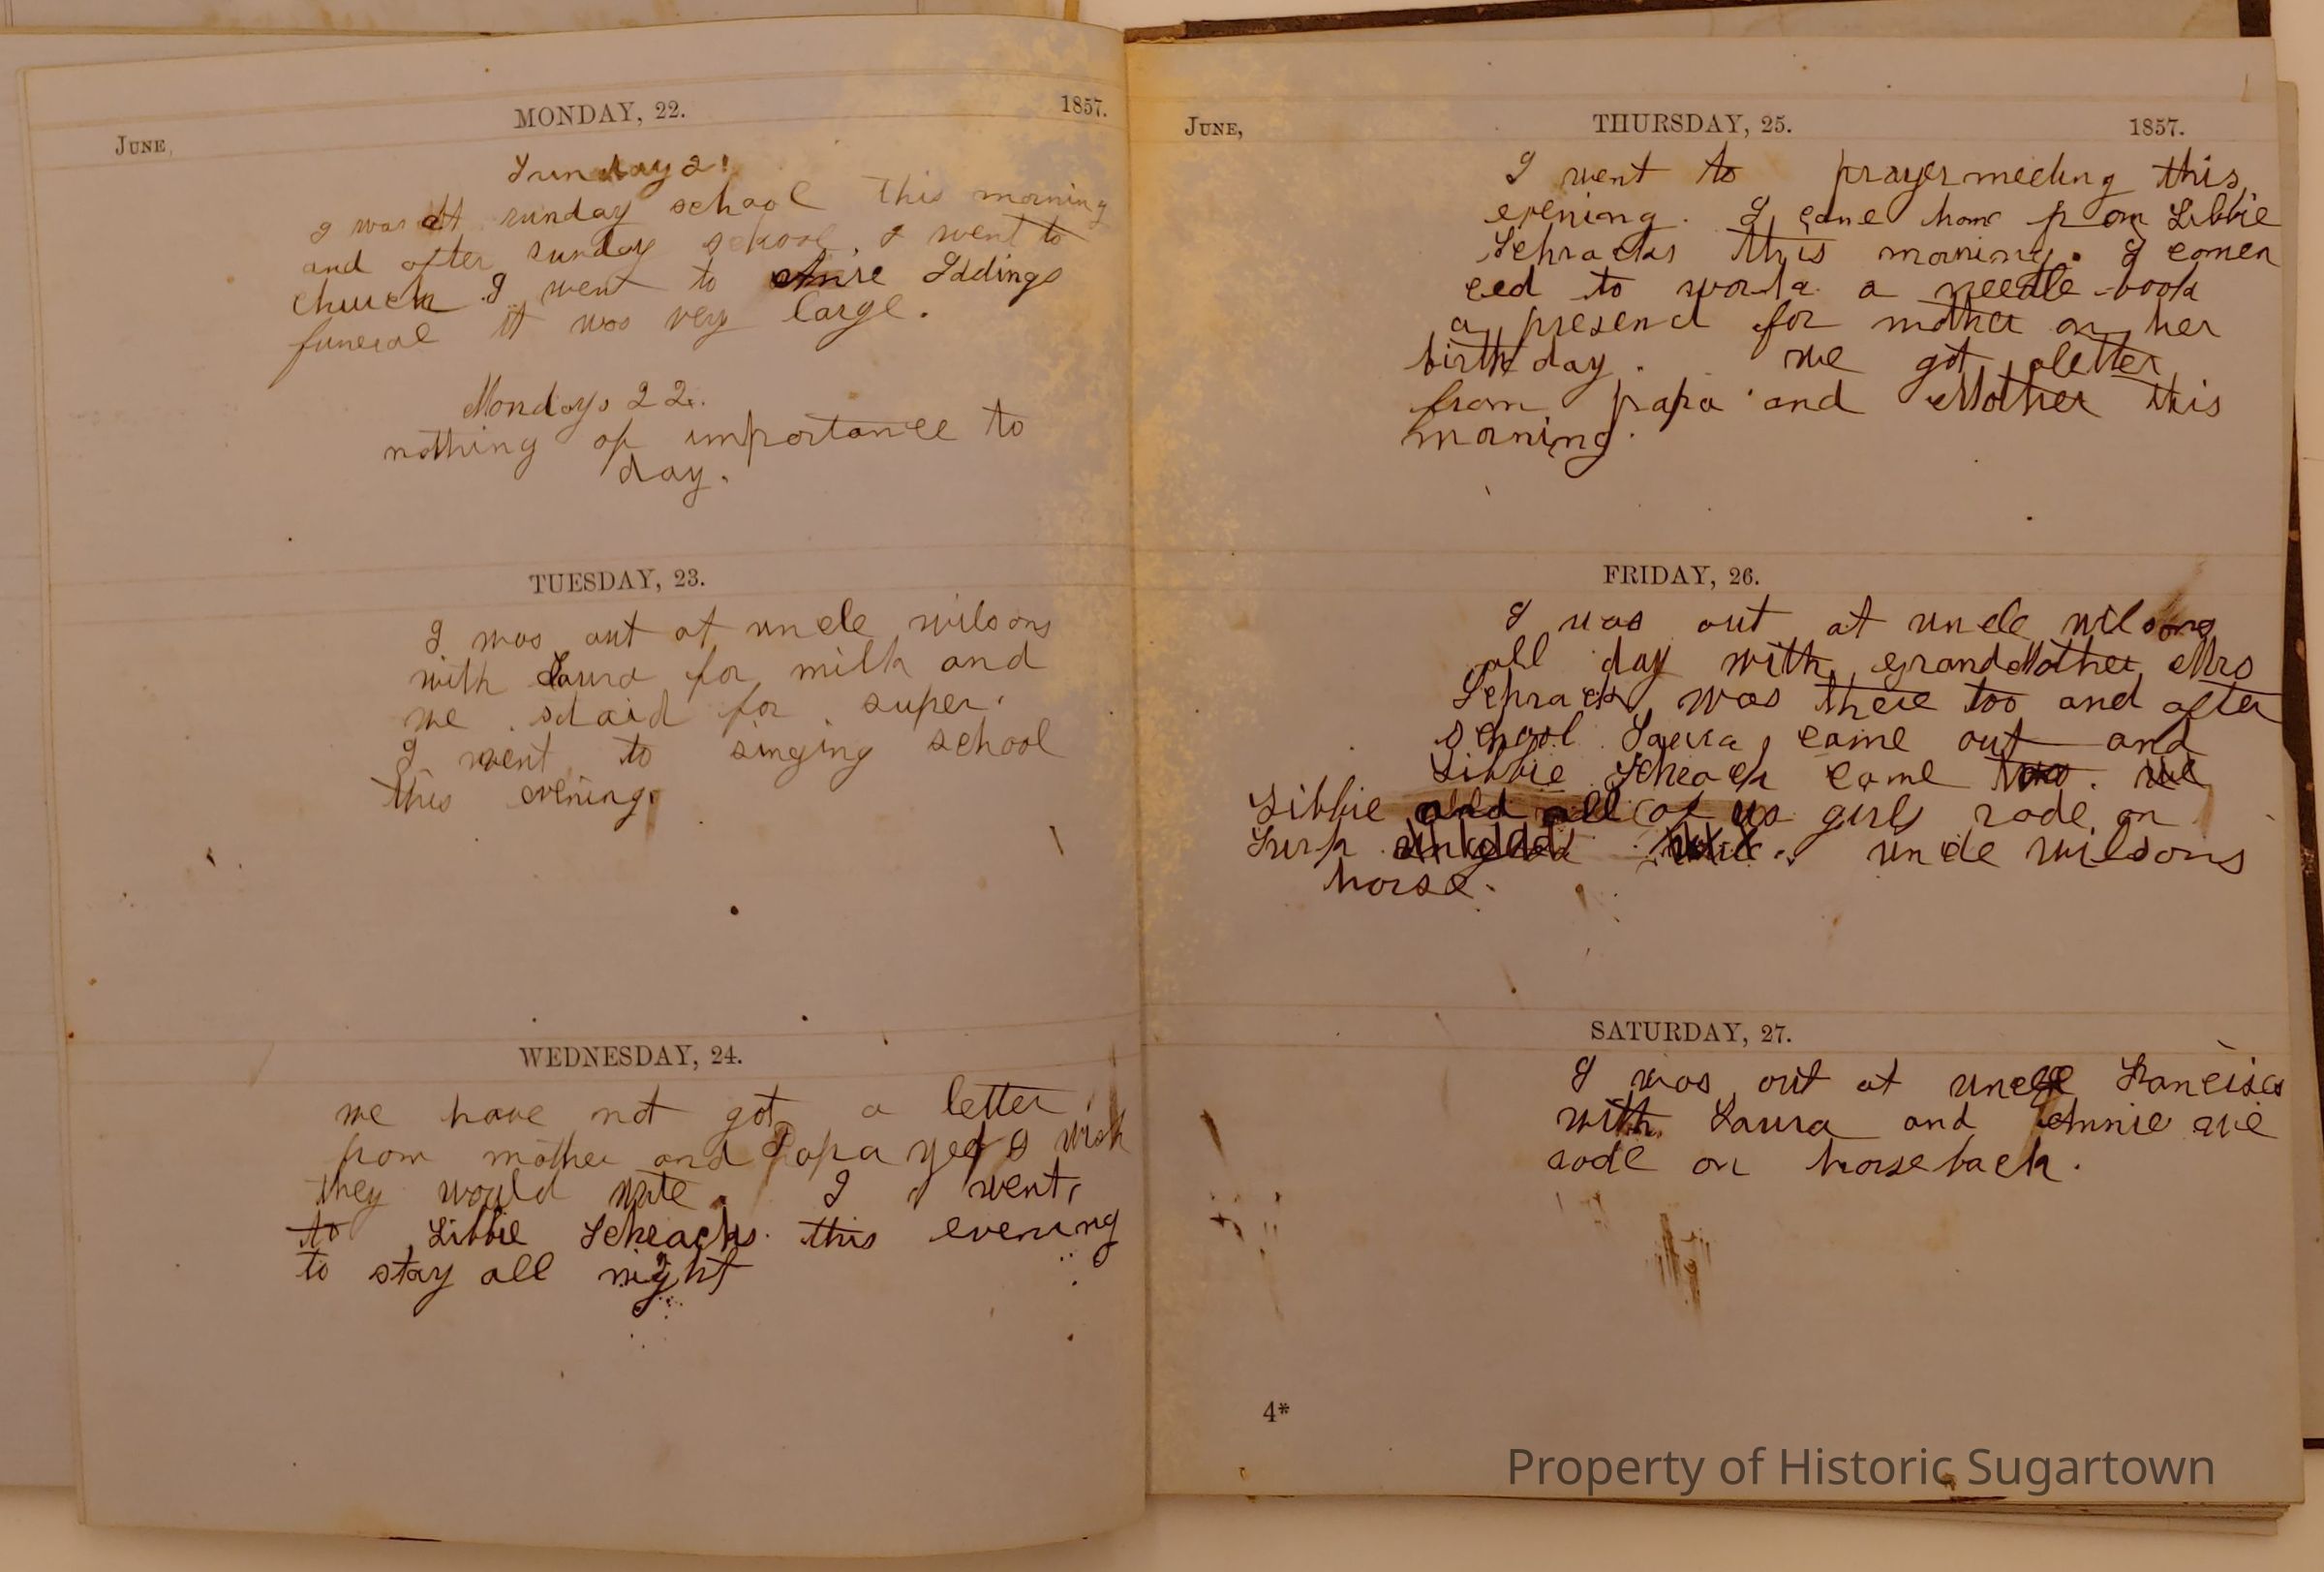 MONDAY, 22.
1857.
June,
Sunday 21
I was at sunday school this morning
and after sunday school, I went to
church. I went to Iddings
funeral it was very large.
Monday 22.
nothing of importance to
day.
TUESDAY, 23.
I was out at uncle wilsons
with Laura for milk and
we staid for super.
I went to singing school
this evening.
WEDNESDAY, 24.
we have not got a letter
from mother and Papa yet I wish
they would write. I went
to Libbie Schracks this evening
to stay all night
June,
THURSDAY, 25.
1857.
I went to prayermeeting this
evening. I came home from Libbie
Schracks this morning. I comen
ced to work a needle-book
a present for mother on her
birthday. we got aletter
from papa and Mother this
morning.
FRIDAY, 26.
I was out at uncle wilsons
all day with grandMother Mrs
Schrack was there too and after
school Laura came out and
Libbie Schrack came too. we
Libbie and all of us girls rode on
uncle wilsons
horse.
SATURDAY, 27.
I was out at uncle Francises
with Laura and Annie we
rode on horseback.
4*
Property of Historic Sugartown